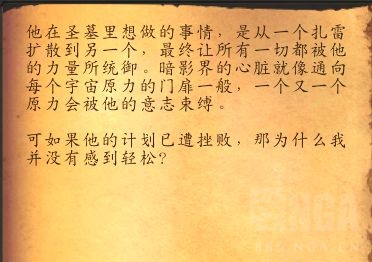 他在圣墓里想做的事情，是从一个扎雷
扩散到另一个，最终让所有一切都被他
的力量所统御。暗影界的心脏就像通向
每个宇宙原力的门扉一般，一个又一个
原力会被他的意志束缚。
可如果他的计划已遭挫败，那为什么我
并没有感到轻松？